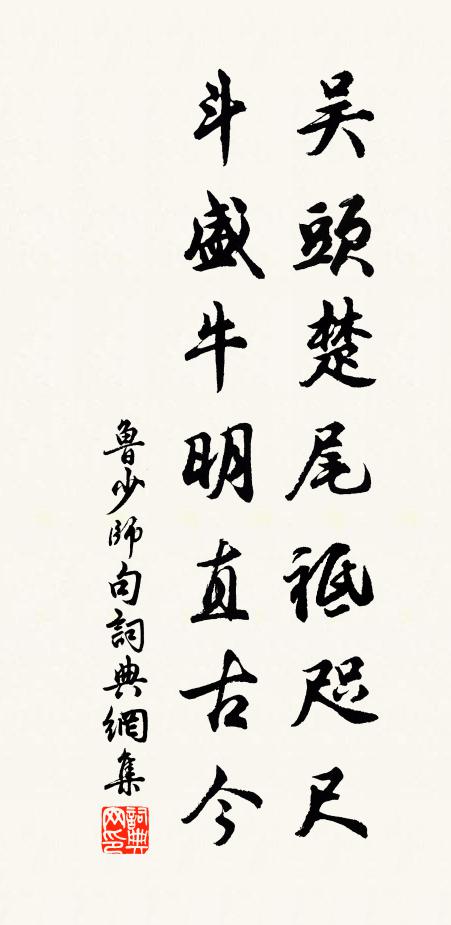 吴頭楚尾祗咫尺
斗盛牛明直古今
魯少師句詞典網集
詞典网印